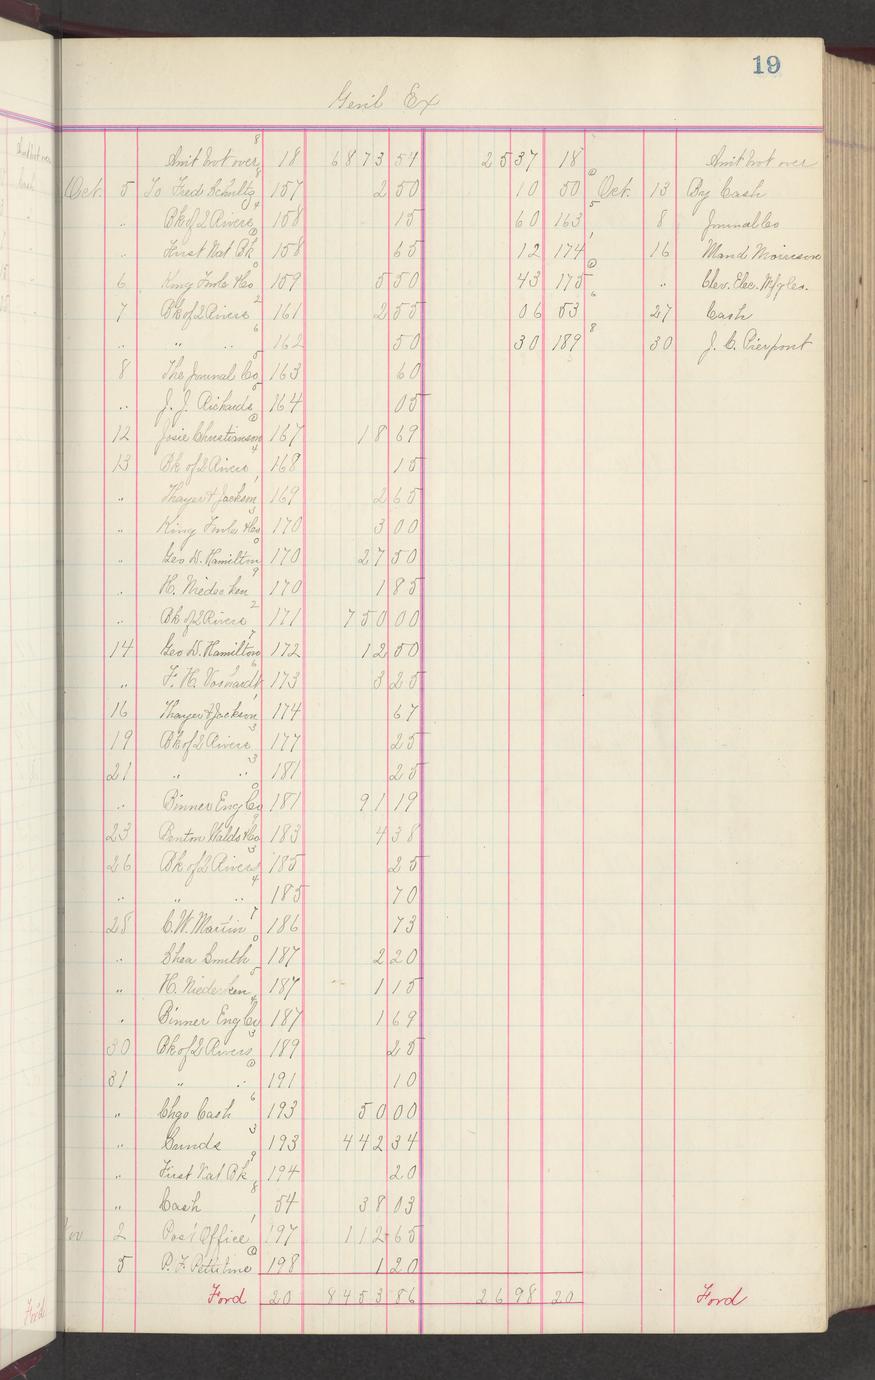 19
Genl Ex
Amt brot over 18 6873 54 2537 18 Amt brot over
Oct. 5 To Fred Schultz 157 2 50 10 50 Oct. 13 By Cash
" Bk of 2 Rivers 158 15 60 163 8 Journal Co
" First Nat Bk 158 65 12 174 16 Mand Morrison
6 King 159 5 50 43 175 " Clev. Elec. Mfg Co.
7 Bk of 2 Rivers 161 2 55 06 53 27 Cash
" " " 162 50 30 189 30 J. C. Pierpont
8 The Journal Co 163 60
" J. J. Richards 164 05
12 Josie Christianson 167 18 69
13 Bk of 2 Rivers 168 15
" Thayer & Jackson 169 2 65
" King 170 3 00
" Geo W. Hamilton 170 27 50
" H. Niedecken 170 1 85
" Bk of 2 Rivers 171 750 00
14 Geo W. Hamilton 172 12 50
" F. H. 173 3 25
16 Thayer & Jackson 174 67
19 Bk of 2 Rivers 177 25
21 " " 181 25
" Binner Eng Co 181 91 19
23 Benton Waldo & Co 183 4 38
26 Bk of 2 Rivers 185 25
" " " 185 70
28 C. W. Martin 186 73
" Shea Smith 187 2 20
" H. Niedecken 187 1 15
" Binner Eng Co 187 1 69
30 Bk of 2 Rivers 189 25
31 " " 191 10
" Chgo Cash 193 50 00
" 193 442 34
" First Nat Bk 194 20
" Cash 54 38 03
Nov 2 Post Office 197 112 65
5 P. F. Pettibone 198 1 20
Ford 20 8453 86 2698 20 Ford